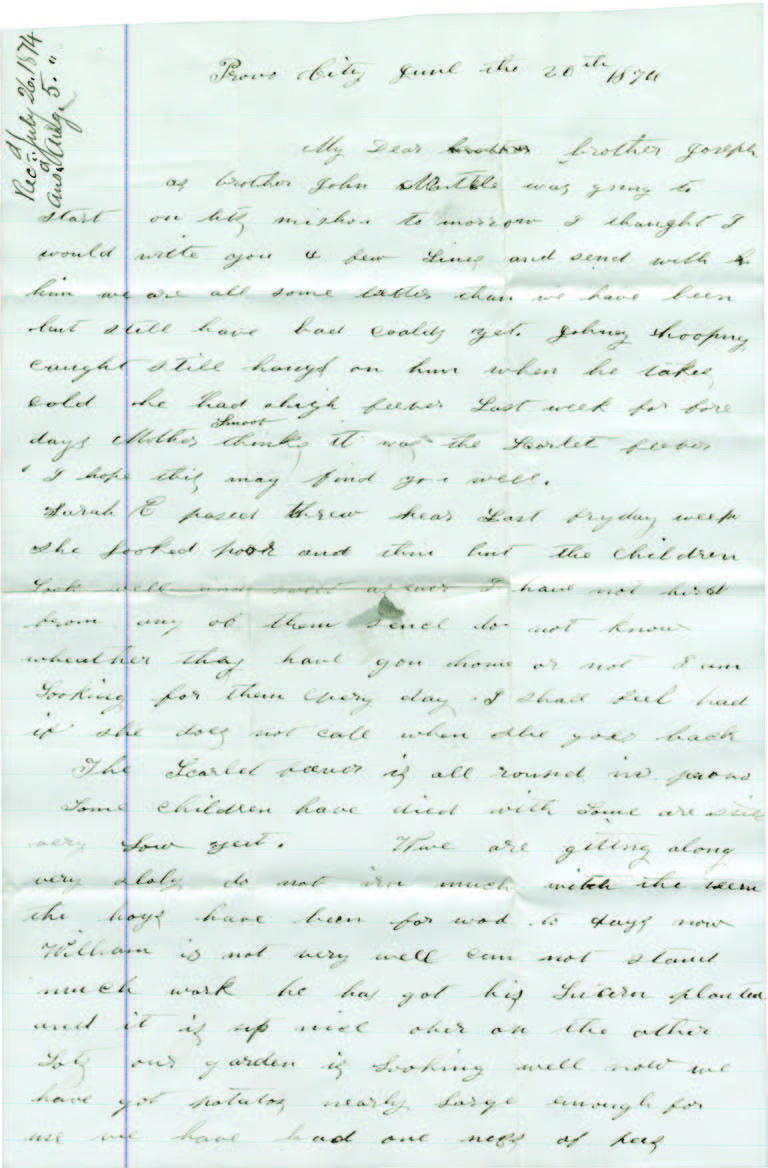 Recd July 26. 1874
Ansd Aug. 5. "
Provo City June the 20th 1874
My Dear brother brother Joseph
as brother John was going to
start on his mishon to morrow I thaught I
would write you a few Lines and send with
him we are all some better than we have been
but still have bad coalds yet. Johney hooping
caught still hangs on him when he takes
cold he had a high feever Last week for fore
days Mother Smoot thinks it was the Scarlet feever
I hope this may find you well.
Sarah E pased threw hear Last fryday week
she looked poor and thin but the children
Look well and as ever I have not hird
from any of them sence do not know
wheather thay have gon home or not I am
Looking for them every day I shall feel bad
if she does not call when she goes back
The Scarlet feever is all round in provo
Some children have died with Some are still
very Low yeit. Wwe are giting along
very sloly do not much witch the teem
the boys have been for wod to days now
William is not very well can not stand
much work he has got his Lucern planted
and it is up nice over on the other
Lots our garden is Looking well now we
have got potatos nearly Large enough for
use we have had one mess of peas